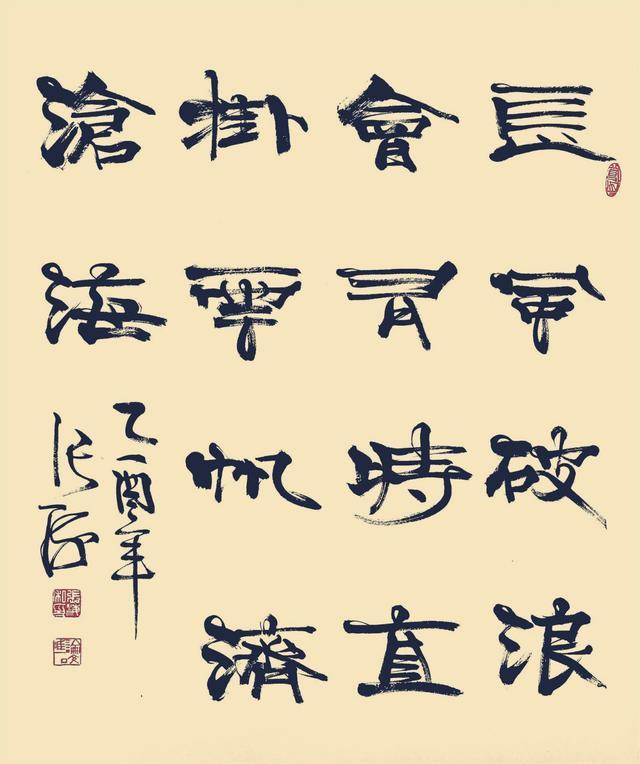 長風破浪
會有時直
掛雲帆濟
滄海
乙酉年
张